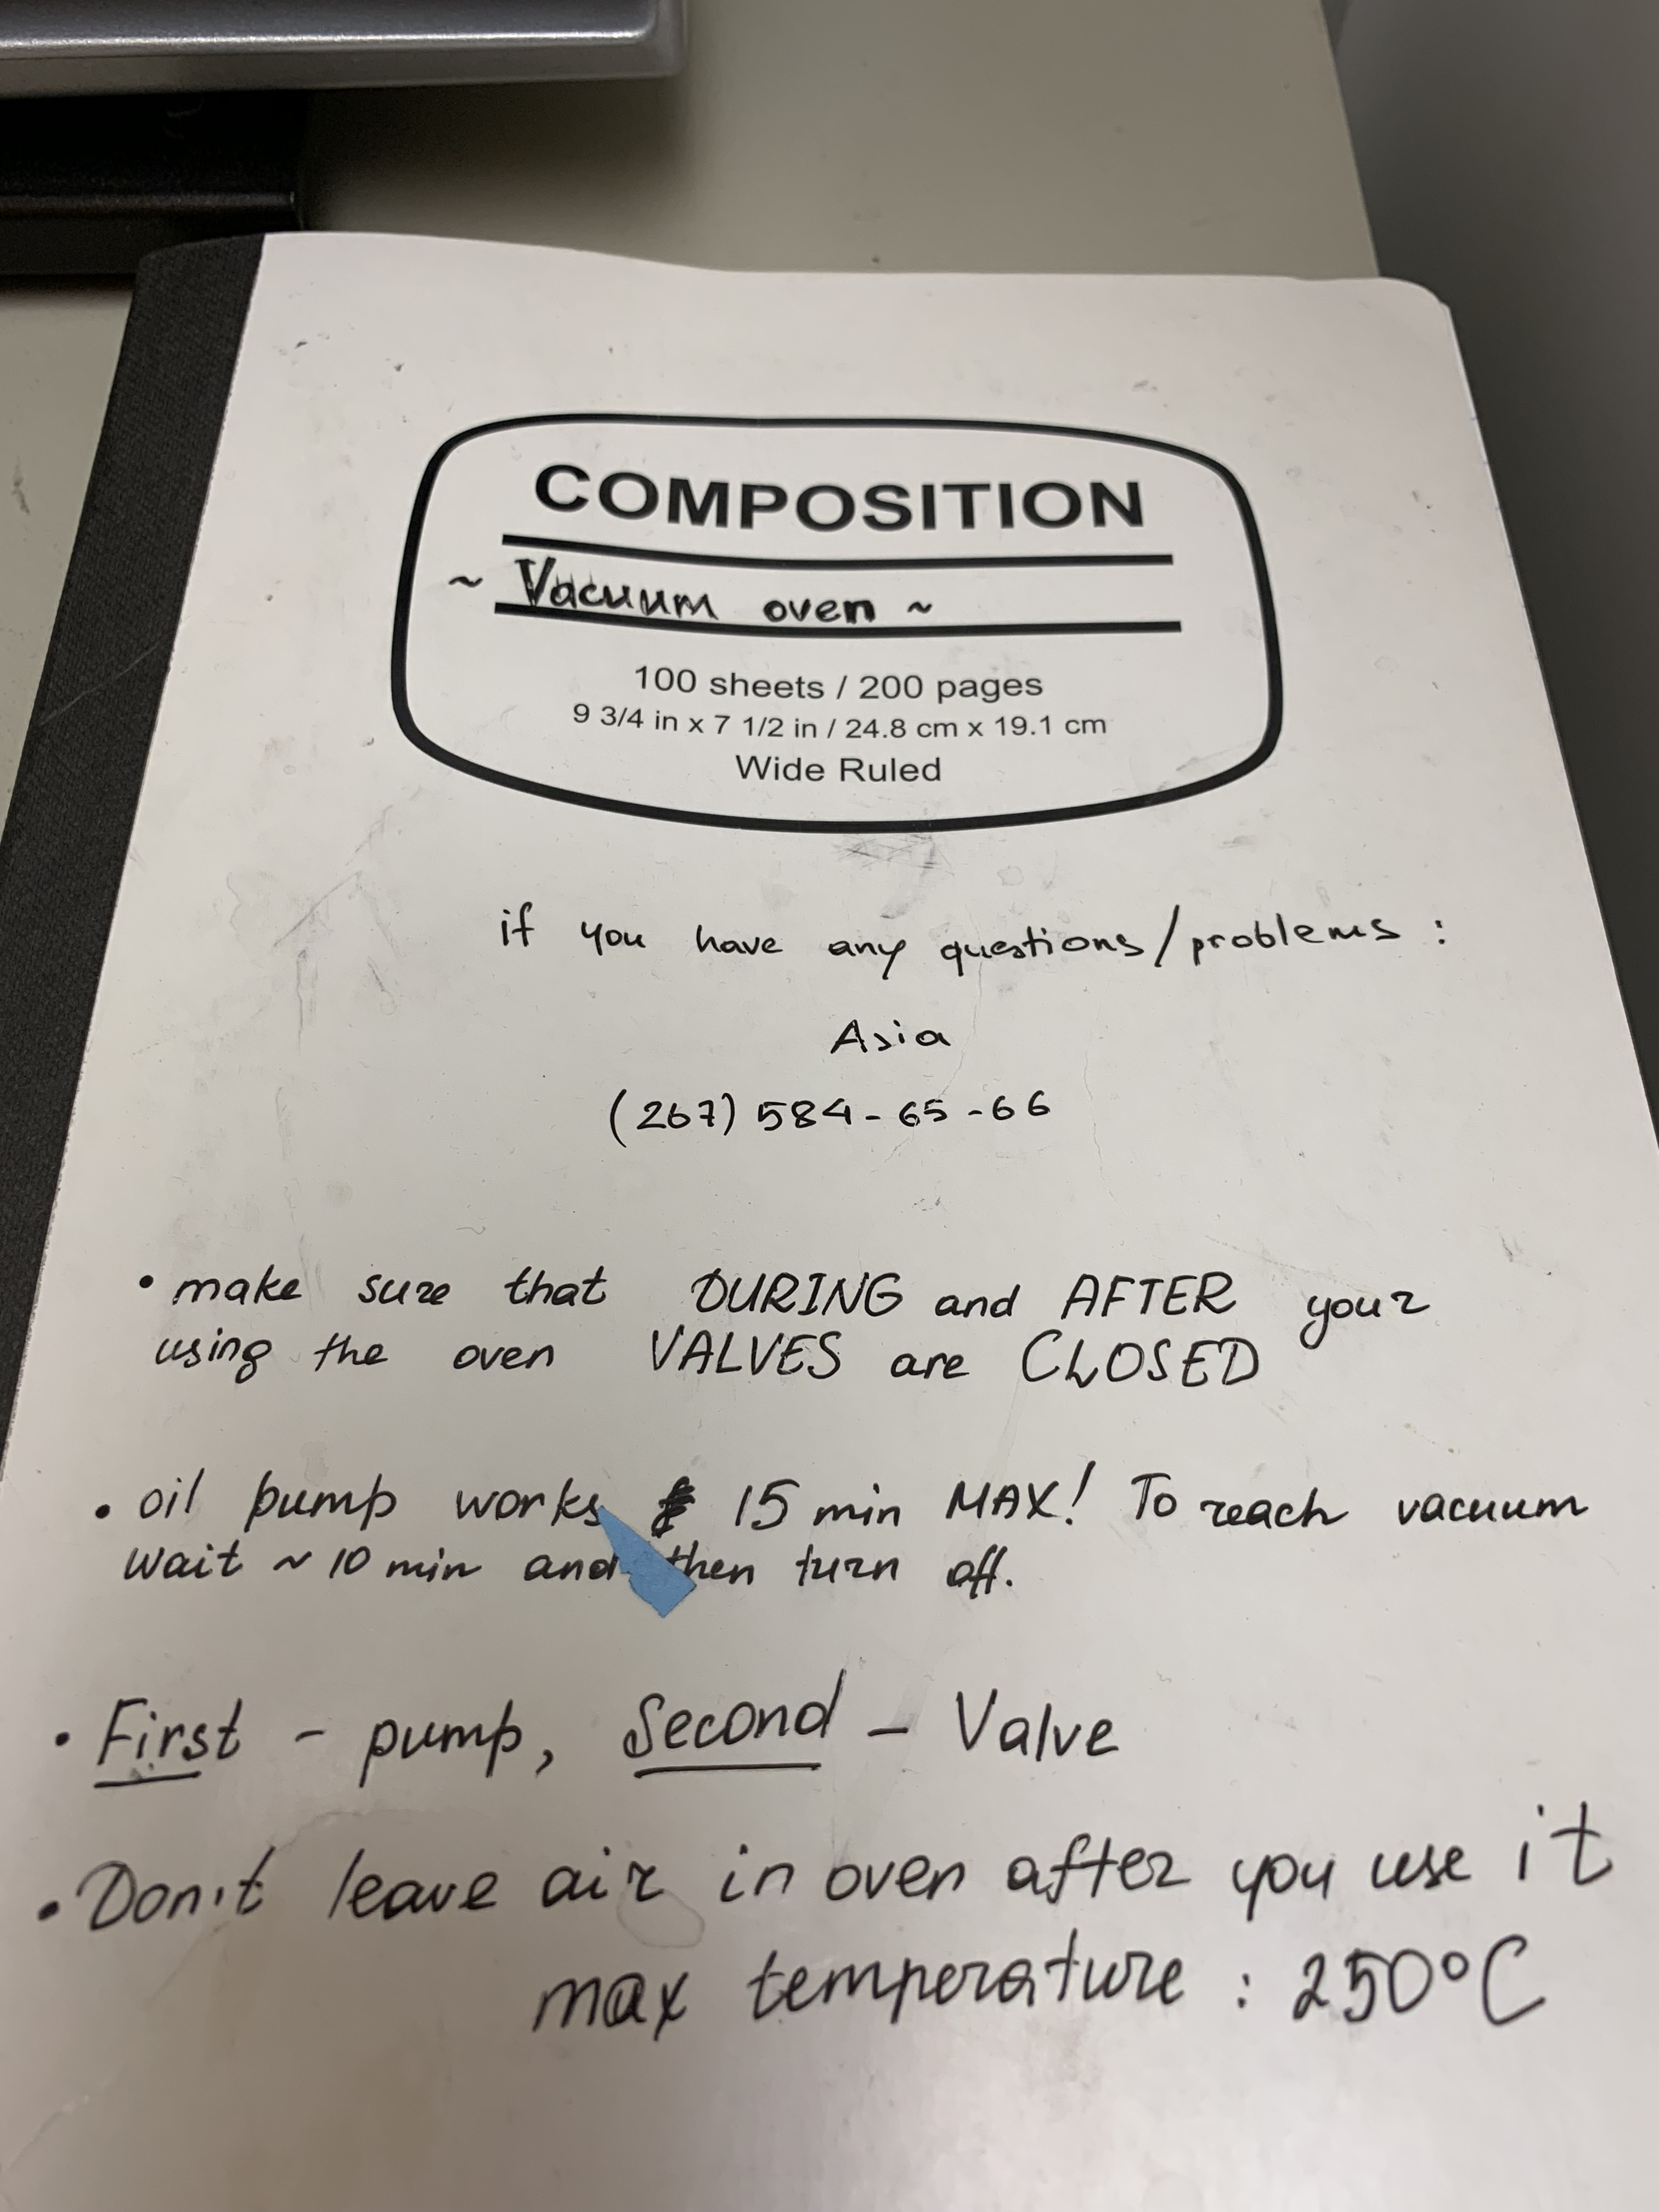 COMPOSITION
~ Vacuum oven ~
100 sheets / 200 pages
9 3/4 in x 7 1/2 in / 24.8 cm x 19.1 cm
Wide Ruled
if you have any questions/problems :
Asia
(267) 584-65-66
• make sure that DURING and AFTER your
using the oven VALVES are CLOSED
• oil pump works 15 min MAX! To reach vacuum
wait ~ 10 min and then turn off.
• First - pump, Second - Valve
• Don't leave air in oven after you use it
max temperature : 250°C